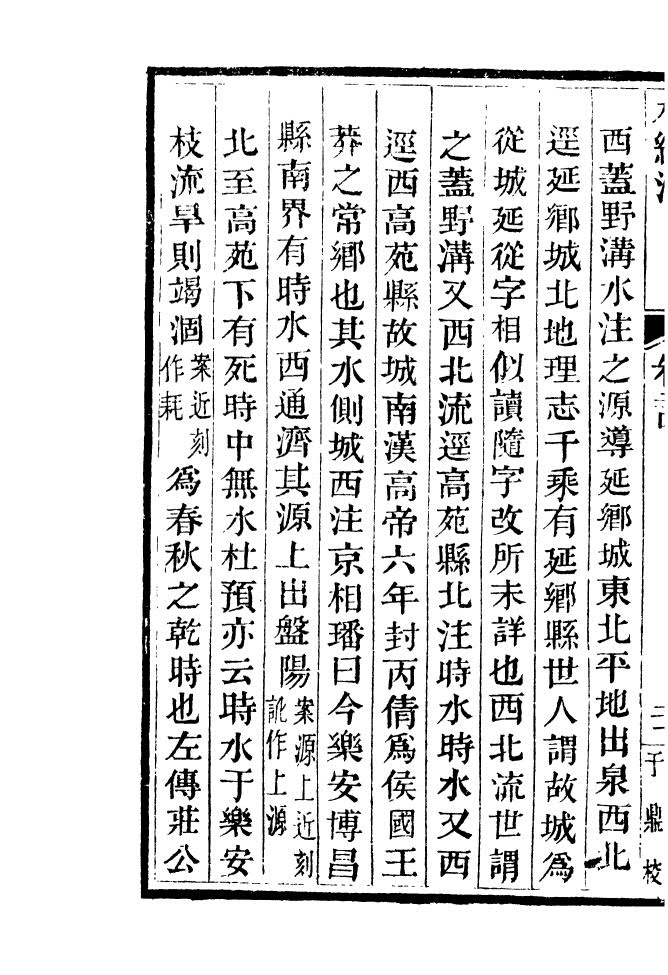 西蓋野溝水注之源導延鄉城東北平地出泉西北
逕延鄉城北地理志千乘有延鄉縣世人謂故城爲
從城延從字相似讀隨字改所未詳也西北流世謂
之蓋野溝又西北流逕高苑縣北注時水時水又西
逕西高苑縣故城南漢高帝六年封丙倩爲侯國王
莽之常鄉也其水側城西注京相璠曰今樂安博昌
縣南界有時水西通濟其源上出盤陽案源上近刻訛作上源
北至高苑下有死時中無水杜預亦云時水于樂安
枝流旱則竭涸案近刻作耗爲春秋之乾時也左傳莊公